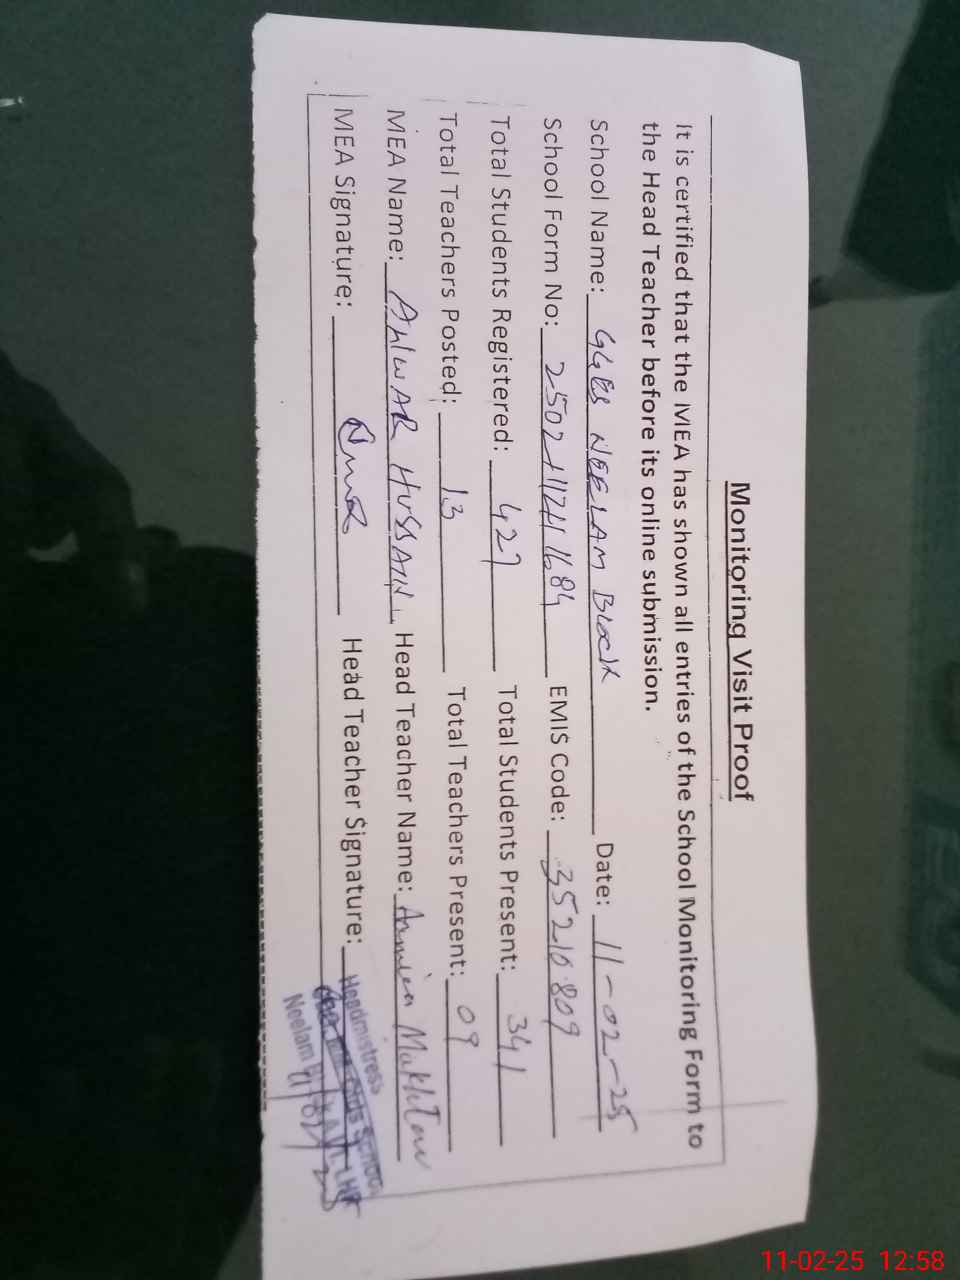 Monitoring Visit Proof
It is certified that the MEA has shown all entries of the School Monitoring Form to
the Head Teacher before its online submission.
School Name: GGES NEELAM Block Date: 11-02-25
School Form No: EMIS Code: 35210809
Total Students Registered: 427 Total Students Present: 341
Total Teachers Posted: 13 Total Teachers Present: 09
MEA Name: ANWAR HUSSAIN. Head Teacher Name:
MEA Signature: Head Teacher Signature:
Headmistress
Girls School
Neelam
11-02-25 12:58